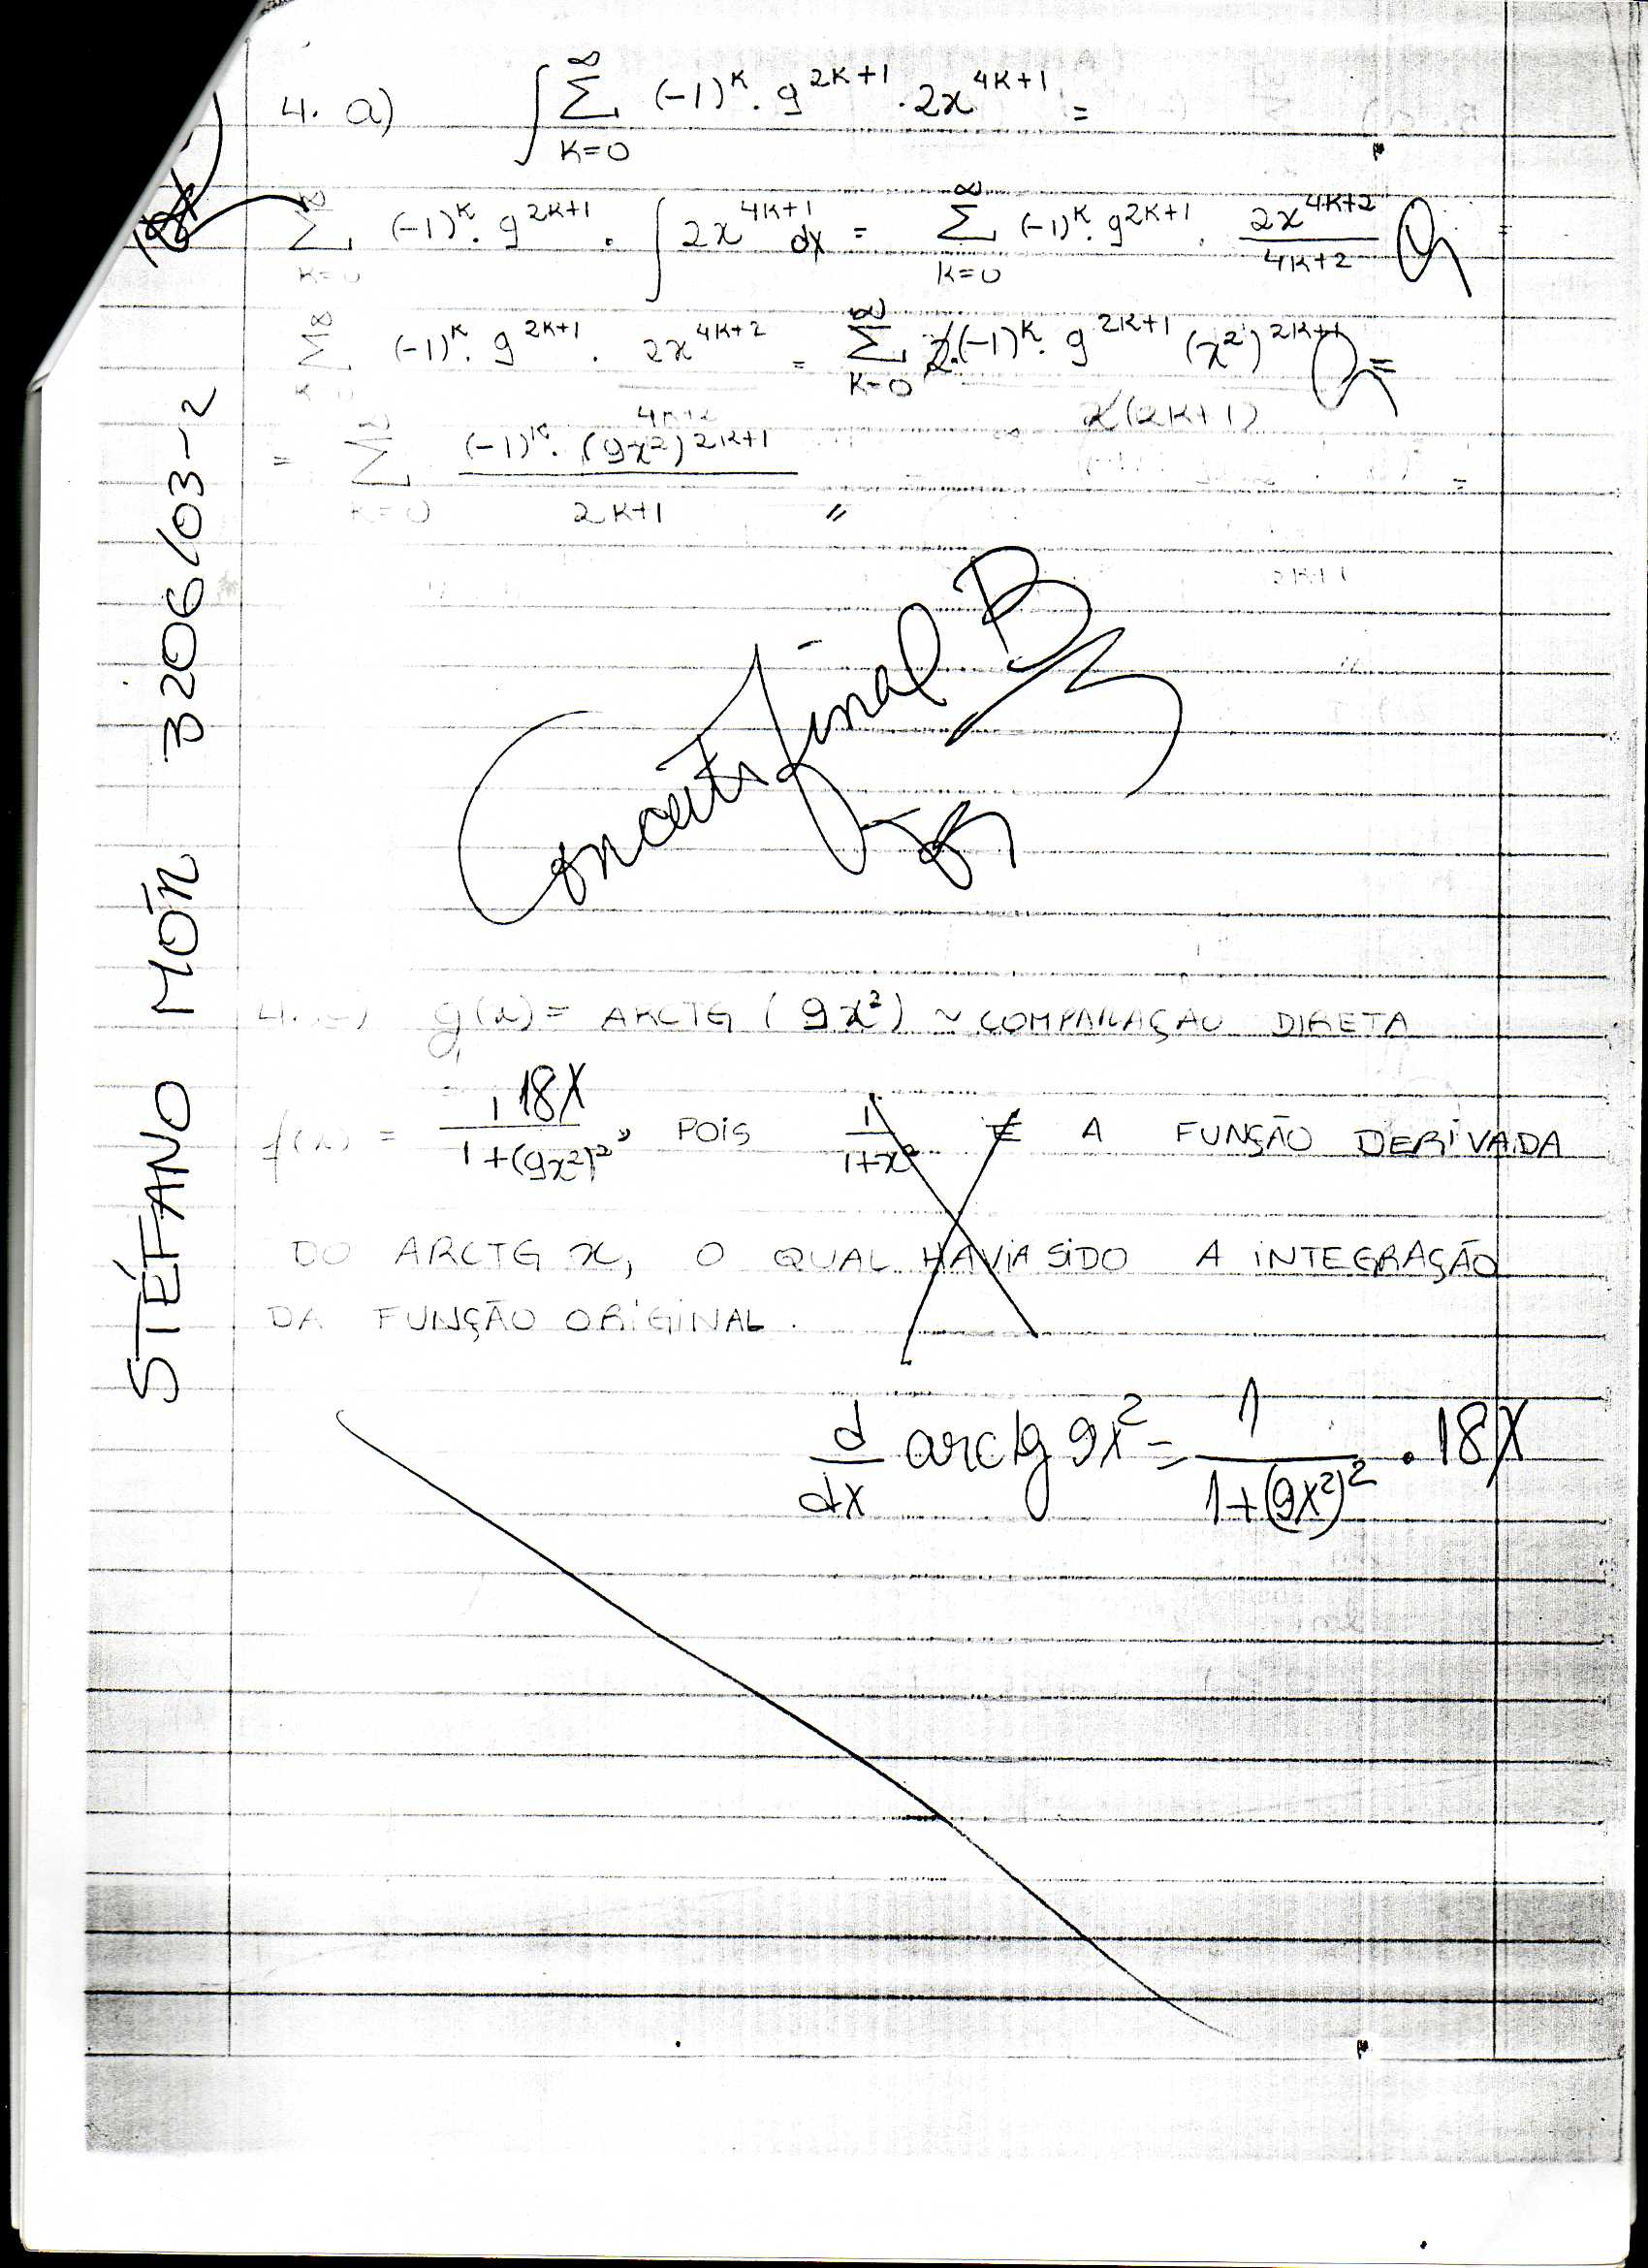 4. a) ∫ ∑_{K=0}^{∞} (-1)^K · 9^{2K+1} · 2x^{4K+1} =
∑_{K=0}^{∞} (-1)^K · 9^{2K+1} · ∫ 2x^{4K+1} dx = ∑_{K=0}^{∞} (-1)^K · 9^{2K+1} · \frac{2x^{4K+2}}{4K+2} =
= ∑_{K=0}^{∞} (-1)^K · 9^{2K+1} · \frac{2x^{4K+2}}{4K+2} = ∑_{K=0}^{∞} \frac{2·(-1)^K · 9^{2K+1} (x²)^{2K+1}}{2(2K+1)} =
= ∑_{K=0}^{∞} \frac{(-1)^K · (9x²)^{2K+1}}{2K+1} //
Conceito final B
g(x) = ARCTG (9x²) ~ COMPARAÇÃO DIRETA
f(x) = \frac{1 18X}{1+(9x²)²}, POIS \frac{1}{1+x²} É A FUNÇÃO DERIVADA
DO ARCTG x, O QUAL HAVIA SIDO A INTEGRAÇÃO
DA FUNÇÃO ORIGINAL.
\frac{d}{dx} arctg 9x² = \frac{1}{1+(9x²)²} · 18X
STÉFANO MÓR 3206/03-2